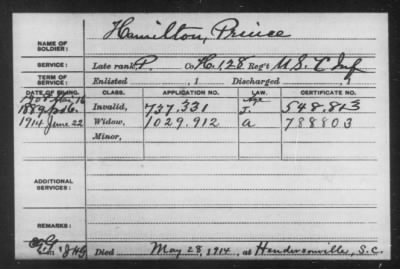 NAME OF SOLDIER: Hamilton, Prince
SERVICE: Late rank, P. Co. H. 128 Reg't U.S. C Inf
TERM OF SERVICE: Enlisted , 1 Discharged , 1
DATE OF FILING. CLASS. APPLICATION NO. LAW. CERTIFICATE NO.
Age
Invalid, 737.331 J. 548.843
1914 June 22 Widow, 1029.912 a 788803
Minor,
ADDITIONAL SERVICES:
REMARKS:
Died May 28, 1914, at Hendersonville, S.C.